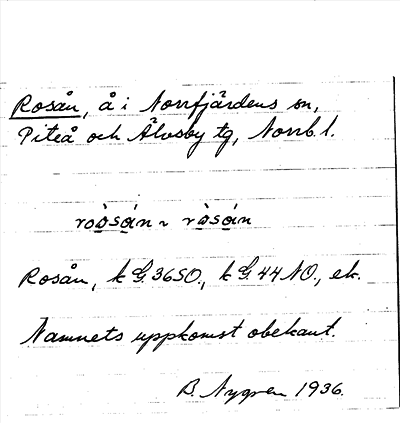 Rosån, å i Norrfjärdens sn,
Piteå och Älvsby tg, Norrb. l.
roòsán ~ ròsán
Rosån, k G. 36 SO., k G. 44 NO., ek.
Namnets uppkomst obekant.
B. Nygren 1936.